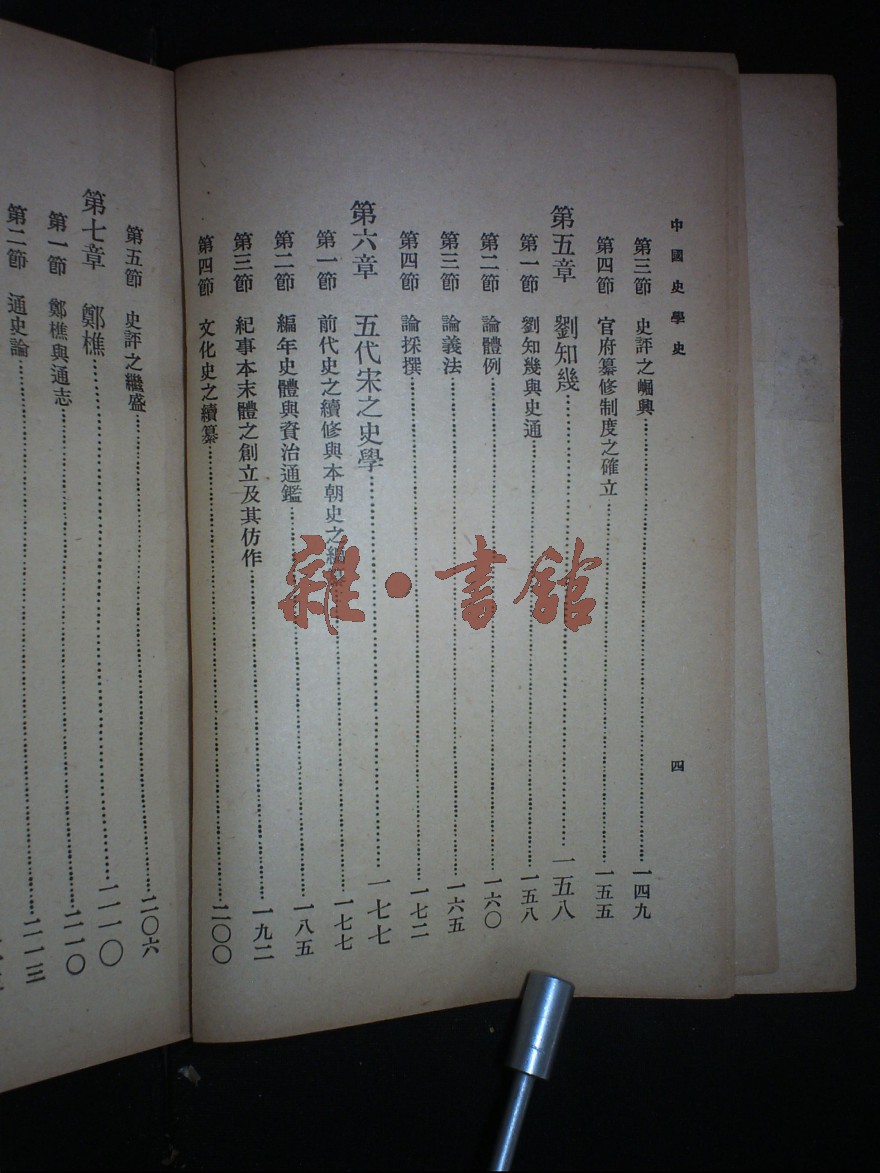 中國史學史
四
第三節 史評之崛興……一四九
第四節 官府纂修制度之確立……一五五
第五章 劉知幾……一五八
第一節 劉知幾與史通……一五八
第二節 論體例……一六〇
第三節 論義法……一六五
第四節 論採撰……一七二
第六章 五代宋之史學……一七七
第一節 前代史之續修與本朝史之編……一七七
第二節 編年史體與資治通鑑……一八五
第三節 紀事本末體之創立及其仿作……一九二
第四節 文化史之續纂……二〇〇
第五節 史評之繼盛……二〇六
第七章 鄭樵……二一〇
第一節 鄭樵與通志……二一〇
第二節 通史論……二一三
雜·書館